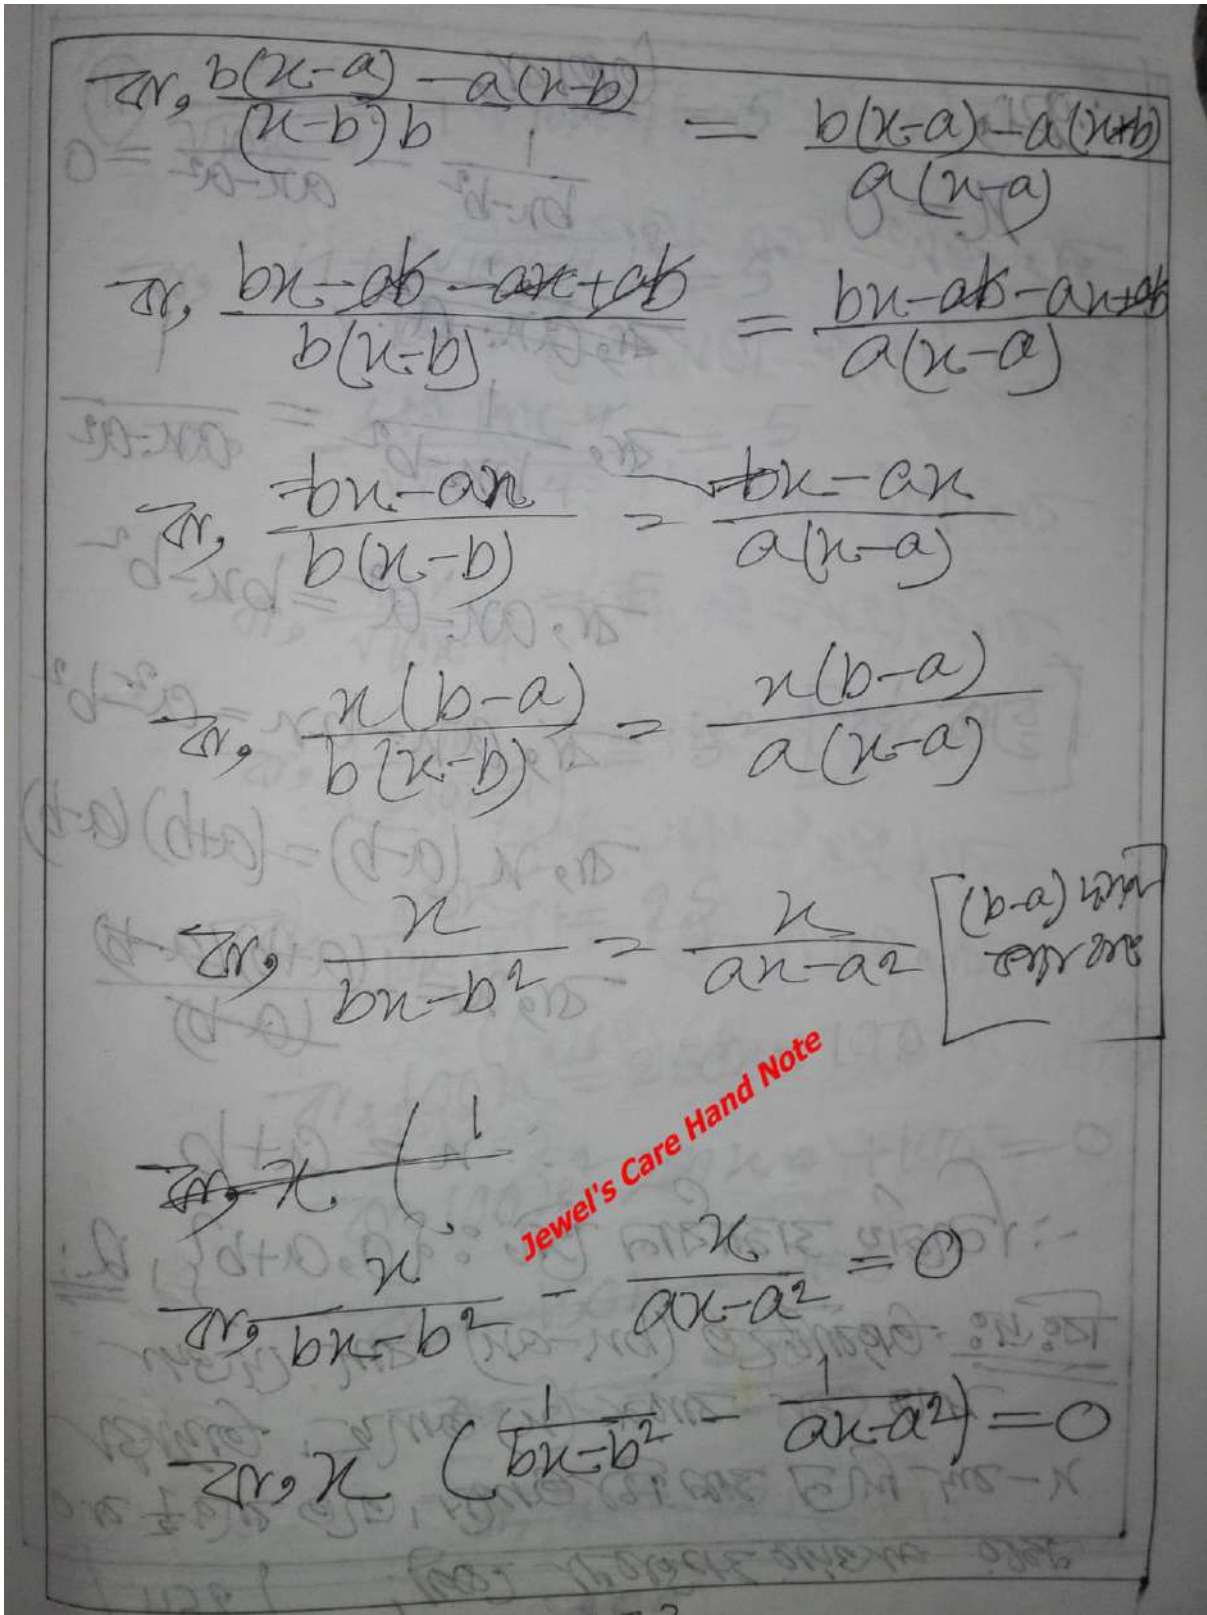 বা, b(x-a) - a(x-b) / (x-b) b = b(x-a) - a(x-b) / a(x-a)
বা, bx - ab - ax + ab / b(x-b) = bx - ab - ax + ab / a(x-a)
বা, bx - ax / b(x-b) = bx - ax / a(x-a)
বা, x(b-a) / b(x-b) = x(b-a) / a(x-a)
বা, x / bx-b² = x / ax-a² [(b-a) দ্বারা ভাগ করে]
Jewel's Care Hand Note
বা, x ( 1
বা, x / bx-b² - x / ax-a² = 0
বা, x ( 1 / bx-b² - 1 / ax-a² ) = 0